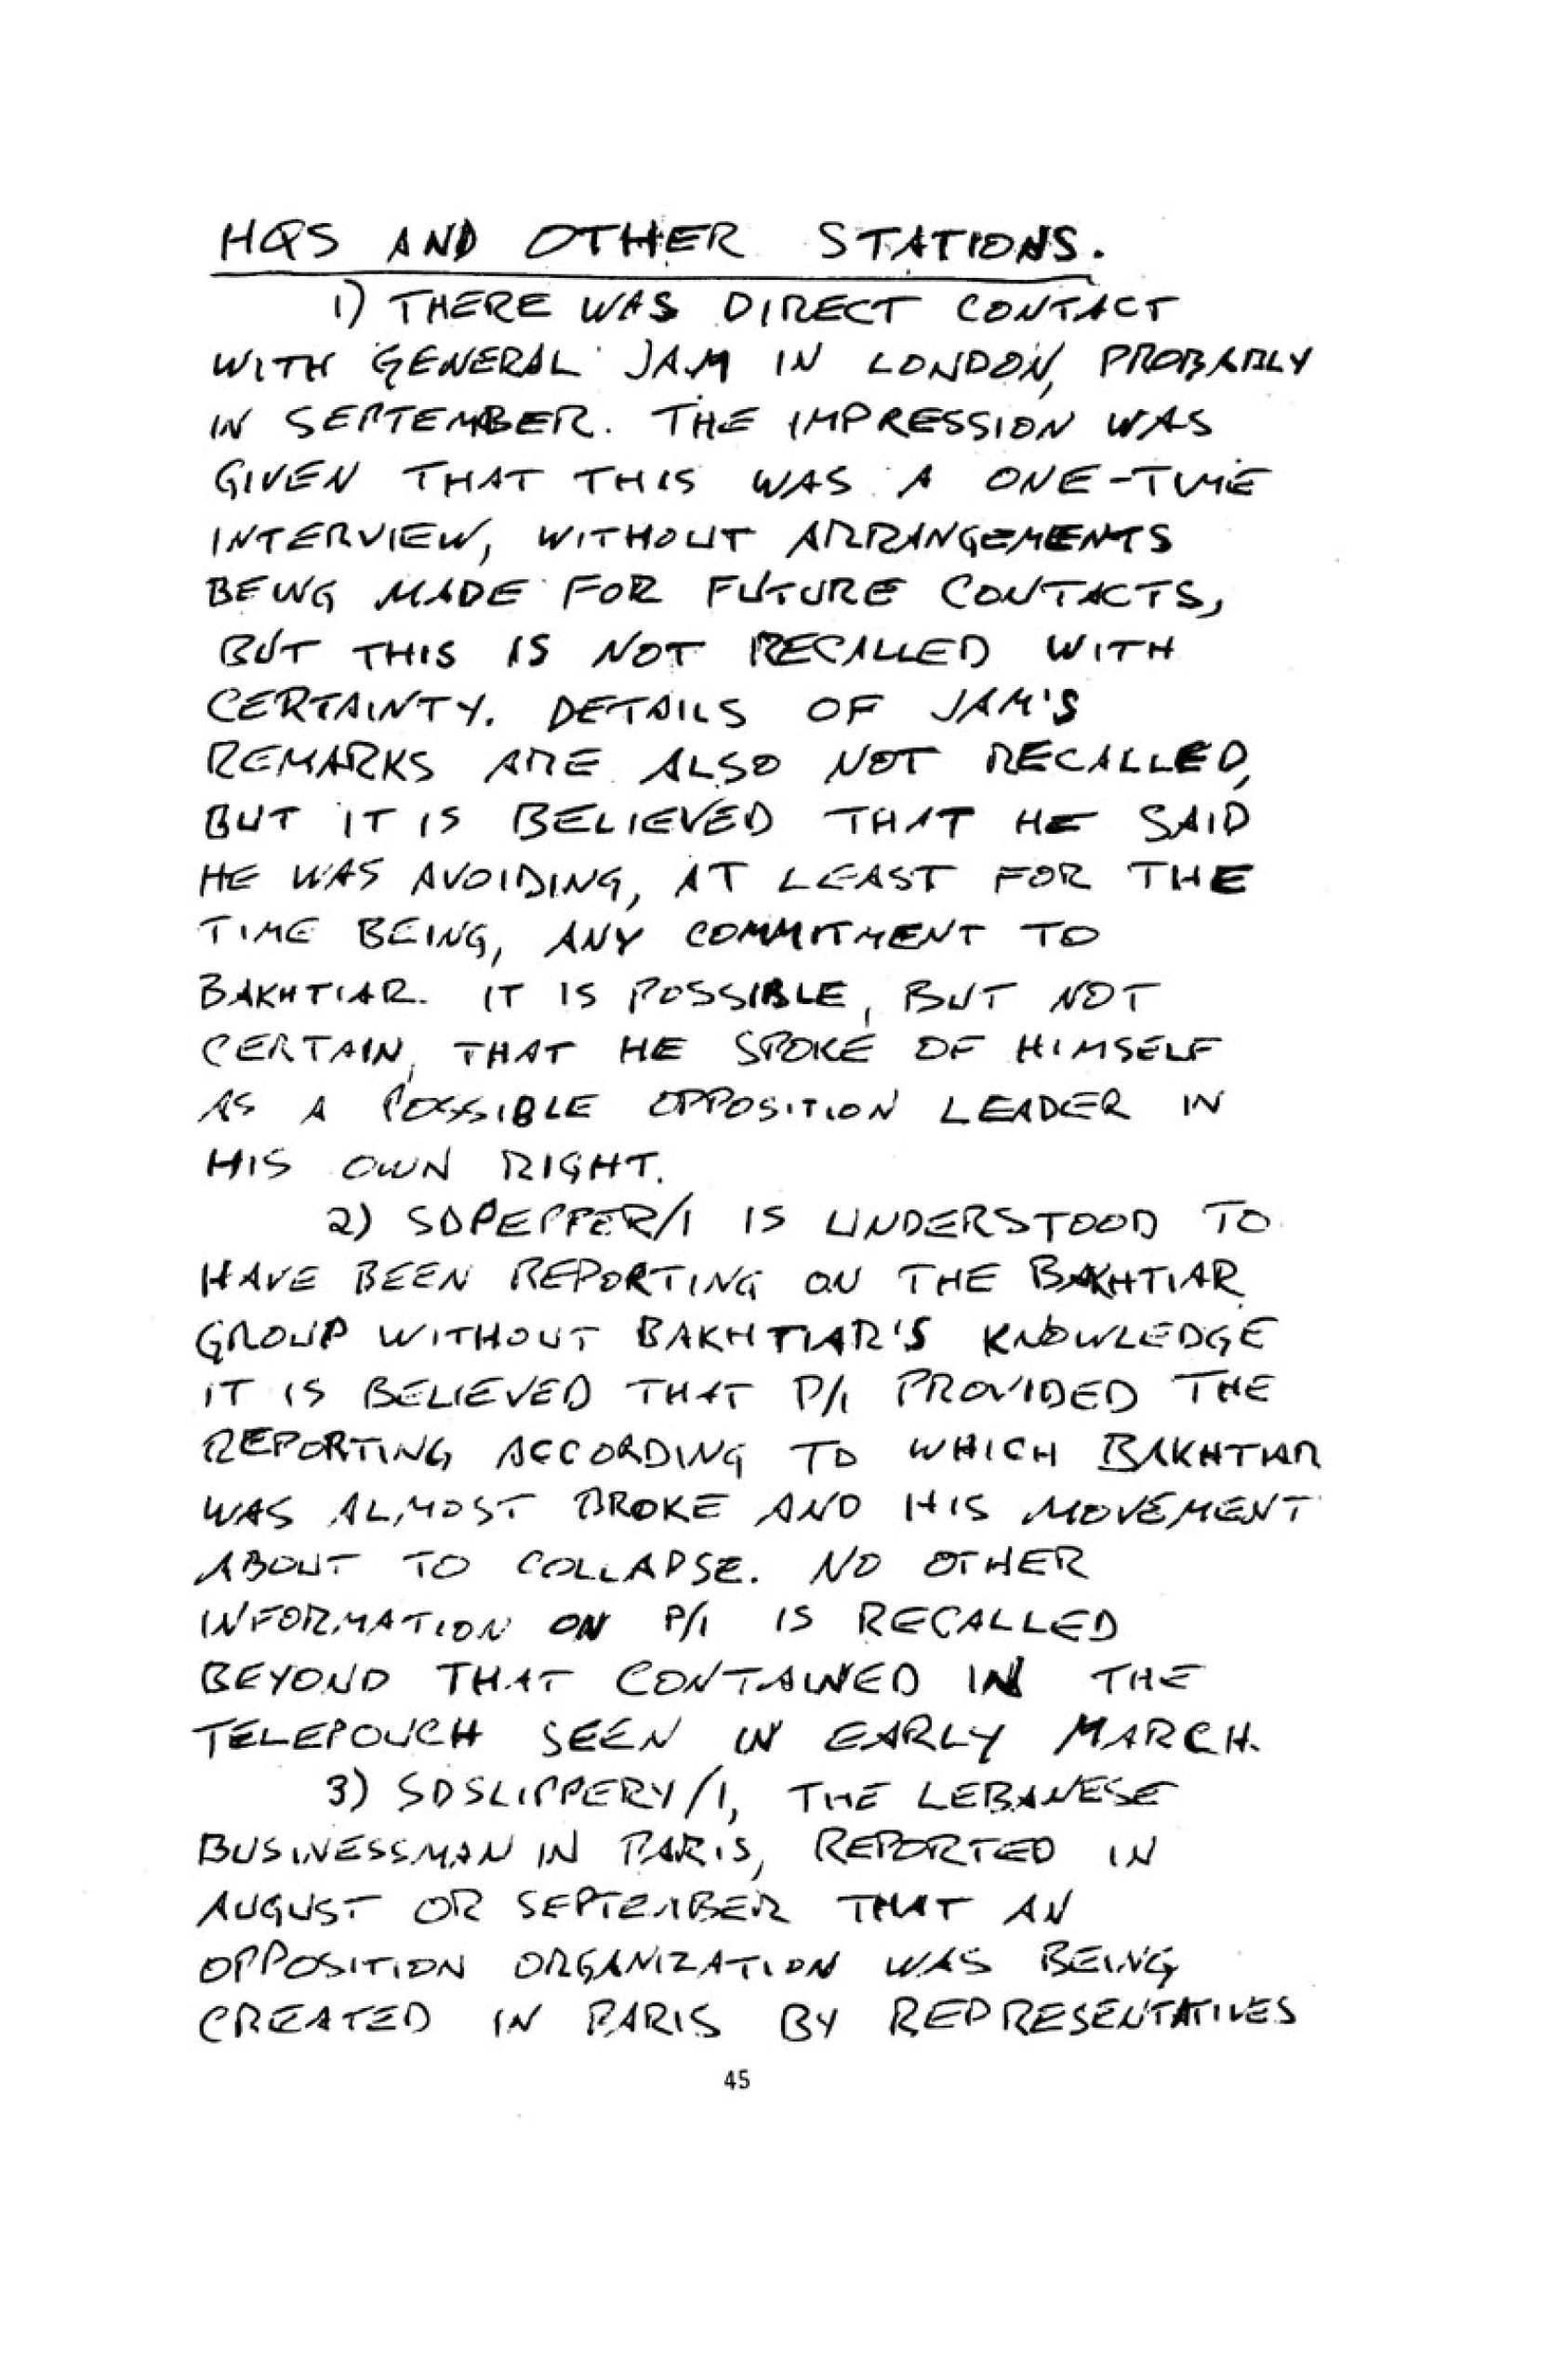 HQS AND OTHER STATIONS.
1) THERE WAS DIRECT CONTACT
WITH GENERAL JAM IN LONDON, PROBABLY
IN SEPTEMBER. THE IMPRESSION WAS
GIVEN THAT THIS WAS A ONE-TIME
INTERVIEW, WITHOUT ARRANGEMENTS
BEING MADE FOR FUTURE CONTACTS,
BUT THIS IS NOT RECALLED WITH
CERTAINTY. DETAILS OF JAM'S
REMARKS ARE ALSO NOT RECALLED,
BUT IT IS BELIEVED THAT HE SAID
HE WAS AVOIDING, AT LEAST FOR THE
TIME BEING, ANY COMMITMENT TO
BAKHTIAR. IT IS POSSIBLE, BUT NOT
CERTAIN, THAT HE SPOKE OF HIMSELF
AS A POSSIBLE OPPOSITION LEADER IN
HIS OWN RIGHT.
2) SDPEPPER/1 IS UNDERSTOOD TO
HAVE BEEN REPORTING ON THE BAKHTIAR
GROUP WITHOUT BAKHTIAR'S KNOWLEDGE
IT IS BELIEVED THAT P/1 PROVIDED THE
REPORTING ACCORDING TO WHICH BAKHTIAR
WAS ALMOST BROKE AND HIS MOVEMENT
ABOUT TO COLLAPSE. NO OTHER
INFORMATION ON P/1 IS RECALLED
BEYOND THAT CONTAINED IN THE
TELEPOUCH SEEN IN EARLY MARCH.
3) SDSLIPPERY/1, THE LEBANESE
BUSINESSMAN IN PARIS, REPORTED IN
AUGUST OR SEPTEMBER THAT AN
OPPOSITION ORGANIZATION WAS BEING
CREATED IN PARIS BY REPRESENTATIVES
45